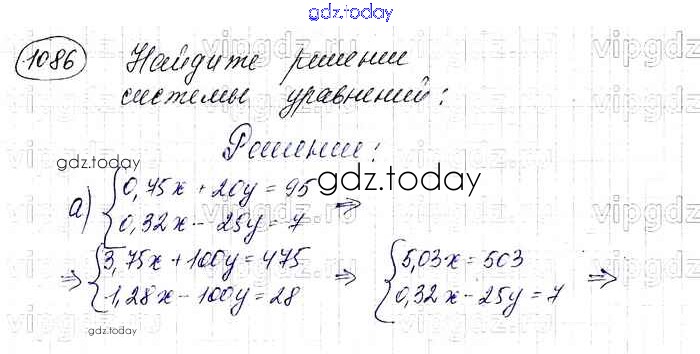 gdz.today
1086 Найдите решение
системы уравнений:
Решение:
gdz.today
а) {0,75x + 20y = 95
0,32x - 25y = 7 ⇒
gdz.today
⇒ {3,75x + 100y = 475
1,28x - 100y = 28 ⇒ {5,03x = 503
0,32x - 25y = 7 ⇒
gdz.today
vipgdz
vipgdz.ru